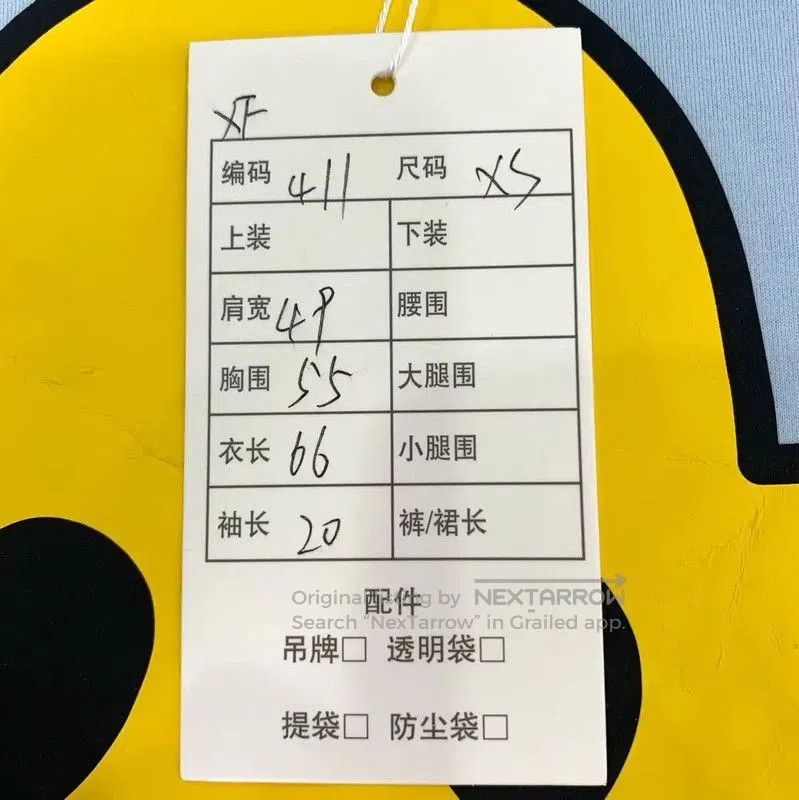 XF
编码 411 尺码 XS
上装 下装
肩宽 49 腰围
胸围 55 大腿围
衣长 66 小腿围
袖长 20 裤/裙长
配件
Original listing by NEXTARROW
Search “NexTarrow” in Grailed app.
吊牌□ 透明袋□
提袋□ 防尘袋□